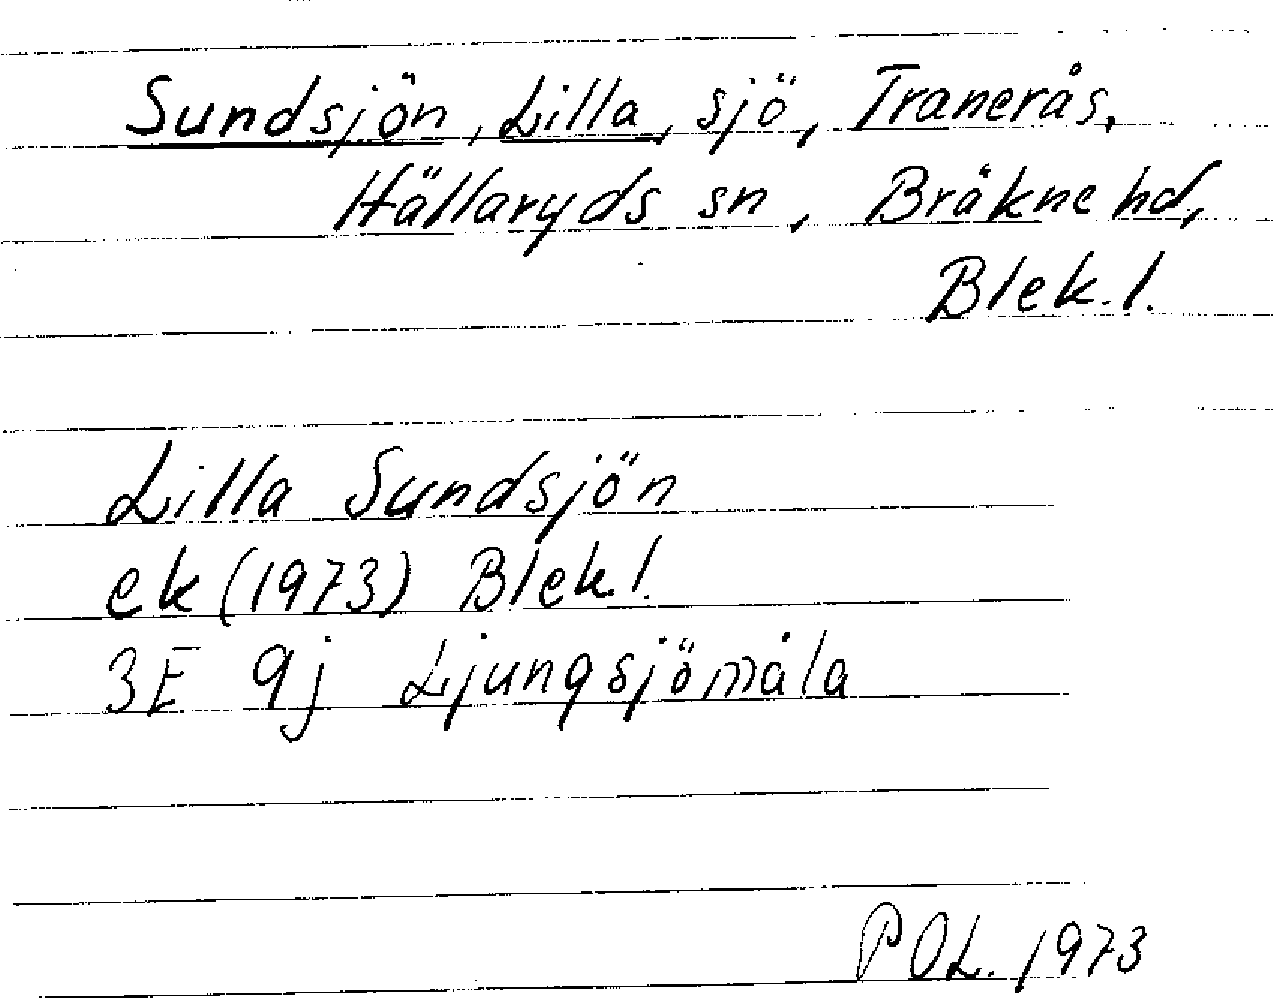 Sundsjön, Lilla, sjö, Tranerås,
Hällaryds sn, Bräkne hd,
Blek. l.
Lilla Sundsjön
ek (1973) Blek l.
3E 9j Ljungsjömåla
POL. 1973